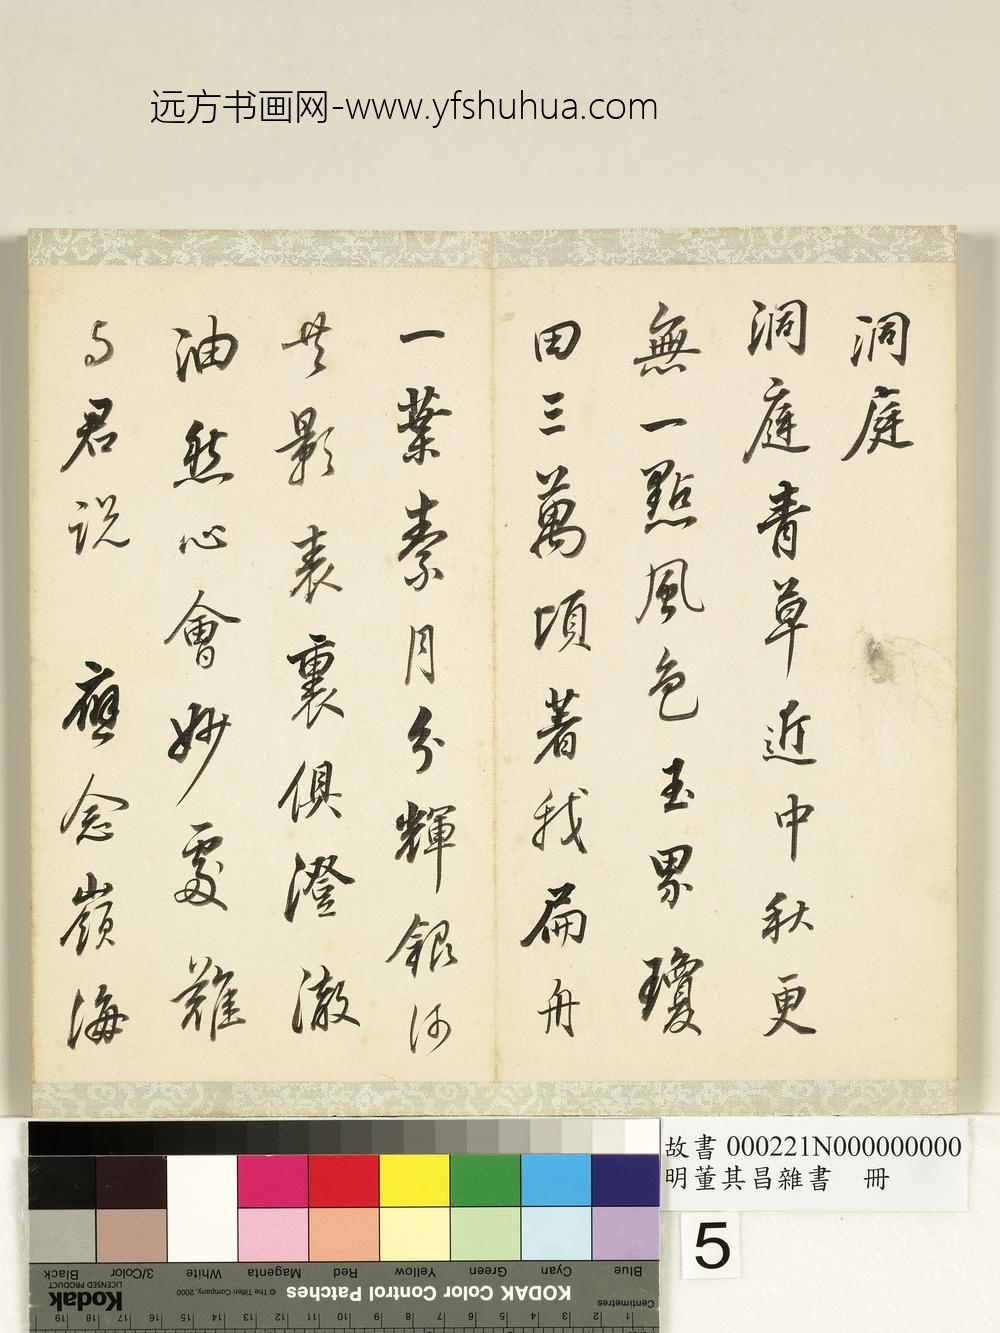 远方书画网-www.yfshuhua.com
洞庭
洞庭青草近中秋更
無一點風色玉界瓊
田三萬頃著我扁舟
一葉素月分輝銀河
共影表裏俱澄澈
油然心會妙處難
与君説 應念嶺海
故書 000221N000000000
明董其昌雜書 冊
5
Blue Cyan Green Yellow Red Magenta White 3/Color Black
KODAK Color Control Patches © The Tiffen Company, 2000 Kodak LICENSED PRODUCT
Centimetres
1 2 3 4 5 6 7 8 9 10 11 12 13 14 15 16 17 18 19